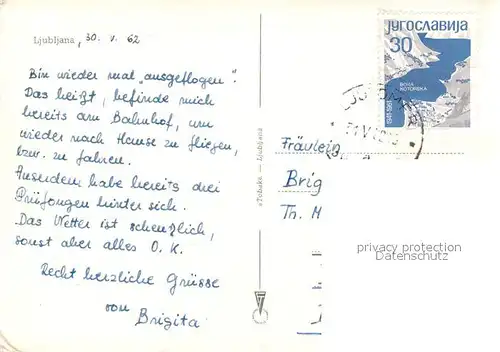 Ljubljana, 30. V. 62
Bin wieder mal "ausgeflogen".
Das heißt, befinde mich
bereits am Bahnhof, um
wieder nach Hause zu fliegen,
bzw. zu fahren.
Ausserdem habe bereits drei
Prüfungen hinter sich.
Das Wetter ist scheuzlich,
sonst aber alles O. K.
Recht herzliche Grüsse
von
Brigita
»Tobak« — Ljubljana
ЈУГОСЛАВИЈА
30
BOKA
KOTORSKA
1941-1961
Fräulein
Brig
Th. M
privacy protection
Datenschutz